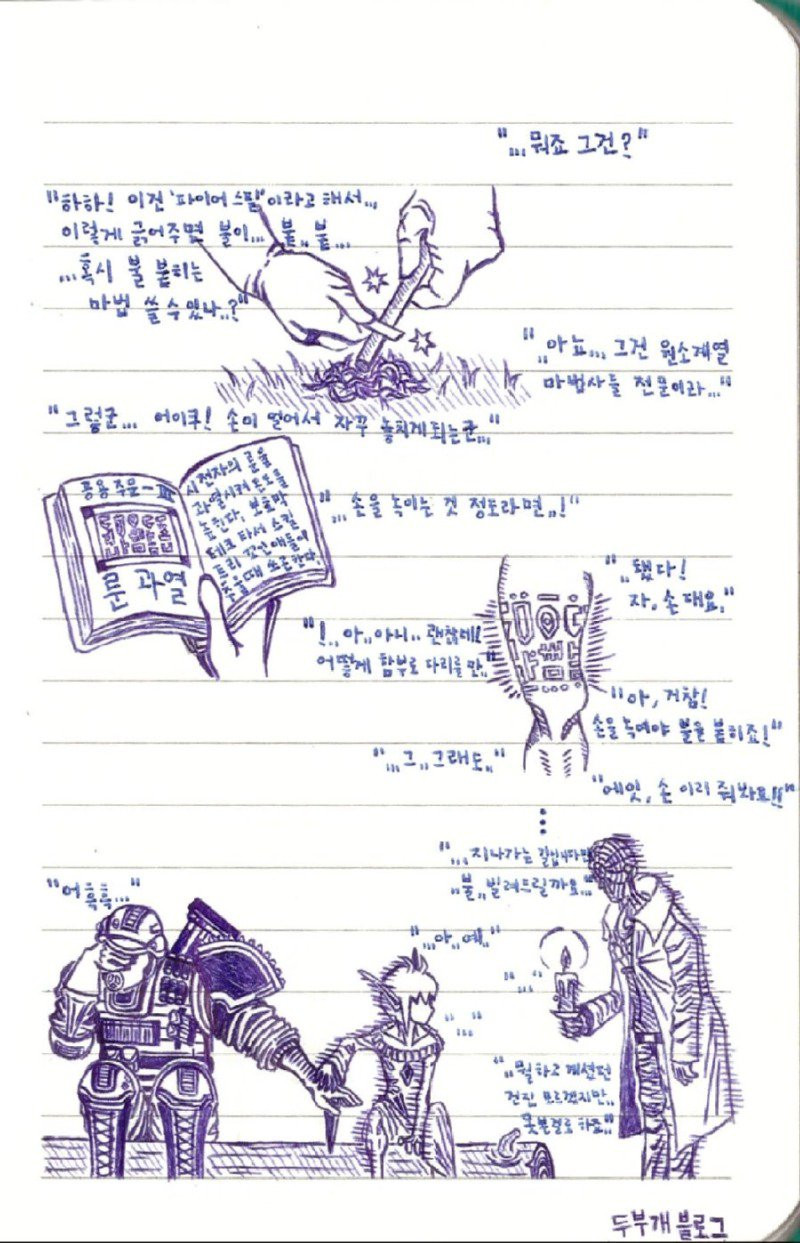 "...뭐죠 그건?"
"하하! 이건 '파이어 스틸'이라고 해서...
이렇게 긁어주면 불이... 불.. 불...
...혹시 불 붙히는
마법 쓸 수 있나..?"
"..아뇨... 그건 원소계열
마법사들 전문이라..."
"그렇군... 어이쿠! 손이 얼어서 자꾸 놓치게 되는군..."
공용주문-III
룬 과열
시전자의 룬을
과열시켜 온도를
높힌다, 보호막
테크 타서 스킬
트리 꼬인 애들이
추울때 쓰곤한다
"... 손을 녹이는 것 정도라면..!"
"..됐다!
자, 손 대요."
"!.. 아.. 아니.. 괜찮네!
어떻게 함부로 다리를 만.."
"아, 거참!
손을 녹여야 불을 붙히죠!"
"...그..그래도.."
"에잇, 손 이리 줘봐요!!"
"...지나가는 길입니다만
..불.. 빌려드릴까요..."
"어흑흑..."
"...아..예.."
"..."
"..."
"..뭘하고 계셨던
건진 모르겠지만..
못본걸로 하죠.."
두부개 블로그